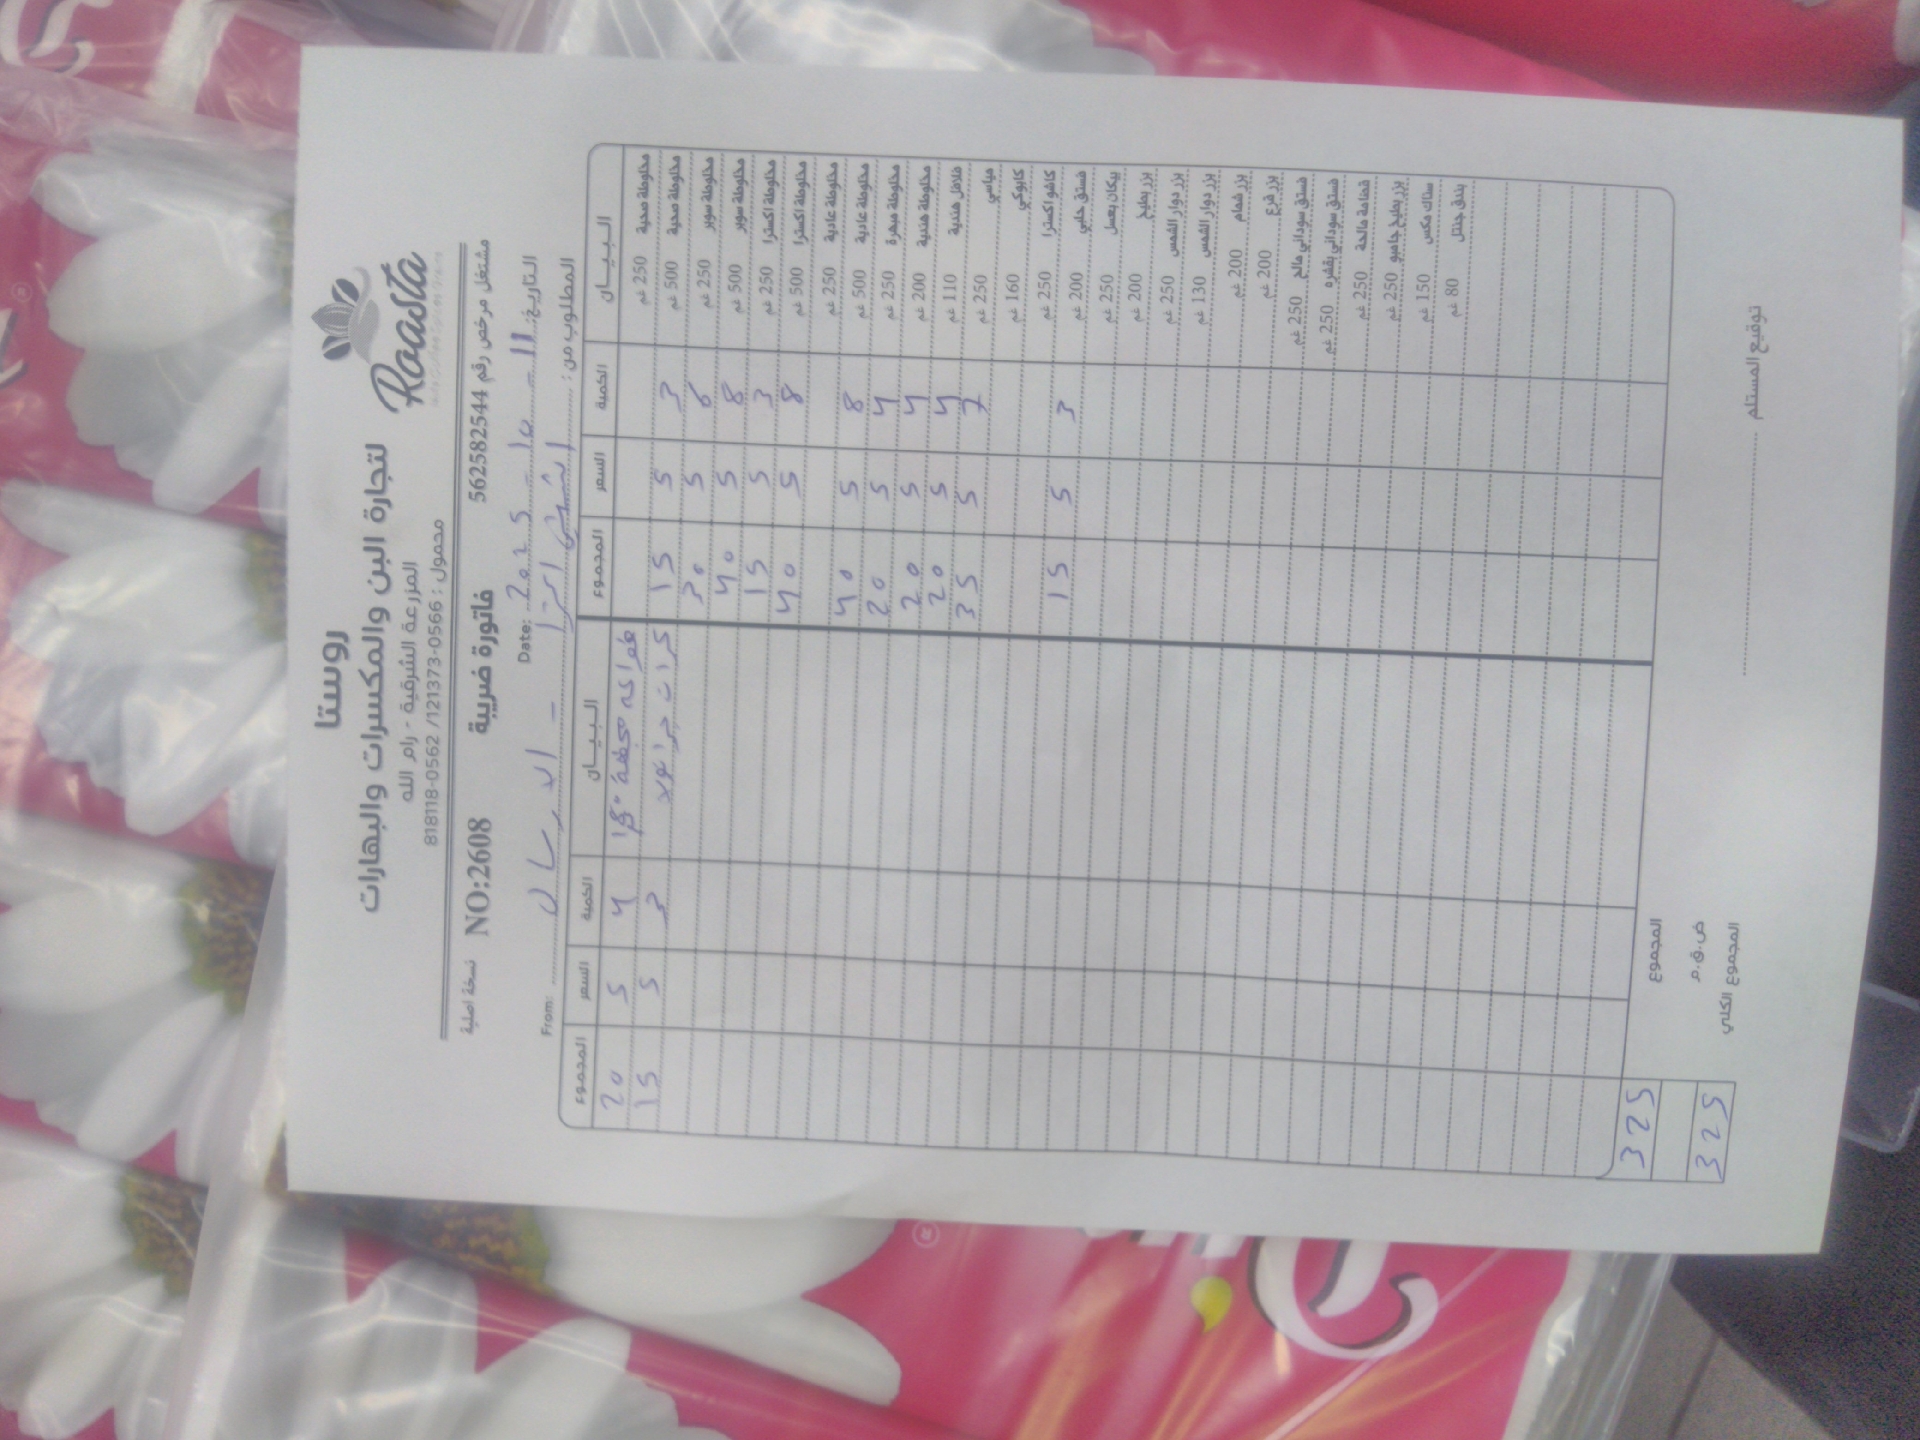 روستا
لتجارة البن والمكسرات والبهارات
المزرعة الشرقية - رام الله
محمول : 0566-121373/ 0562-818118
Roasta
مشتغل مرخص رقم 562582544
فاتورة ضريبة
NO:2608
نسخة اصلية
التاريخ: 11 - 10 - 2025 Date:
المطلوب من : From:
البيـــان الكمية السعر المجموع البيـــان الكمية السعر المجموع
مخلوطة صحية 250 غم 4 5 20
مخلوطة صحية 500 غم 3 5 15 3 5 15
مخلوطة سوبر 250 غم 6 5 30
مخلوطة سوبر 500 غم 8 5 40
مخلوطة اكسترا 250 غم 3 5 15
مخلوطة اكسترا 500 غم 8 5 40
مخلوطة عادية 250 غم
مخلوطة عادية 500 غم 8 5 40
مخلوطة مبهرة 250 غم 4 5 20
مخلوطة هندية 200 غم 4 5 20
فلافل هندية 110 غم 4 5 20
مياسي 250 غم 7 5 35
كابوكي 160 غم
كاشو اكسترا 250 غم 3 5 15
فستق حلبي 200 غم
بيكان بعسل 250 غم
بزر بطيخ 200 غم
بزر دوار الشمس 250 غم
بزر دوار الشمس 130 غم
بزر شمام 200 غم
بزر قرع 200 غم
فستق سوداني مالح 250 غم
فستق سوداني بقشره 250 غم
قضامة مالحة 250 غم
بزر بطيخ جامبو 250 غم
سناك مكس 150 غم
بندق جنتل 80 غم
المجموع 325
ض.ق.م
المجموع الكلي 325
توقيع المستلم